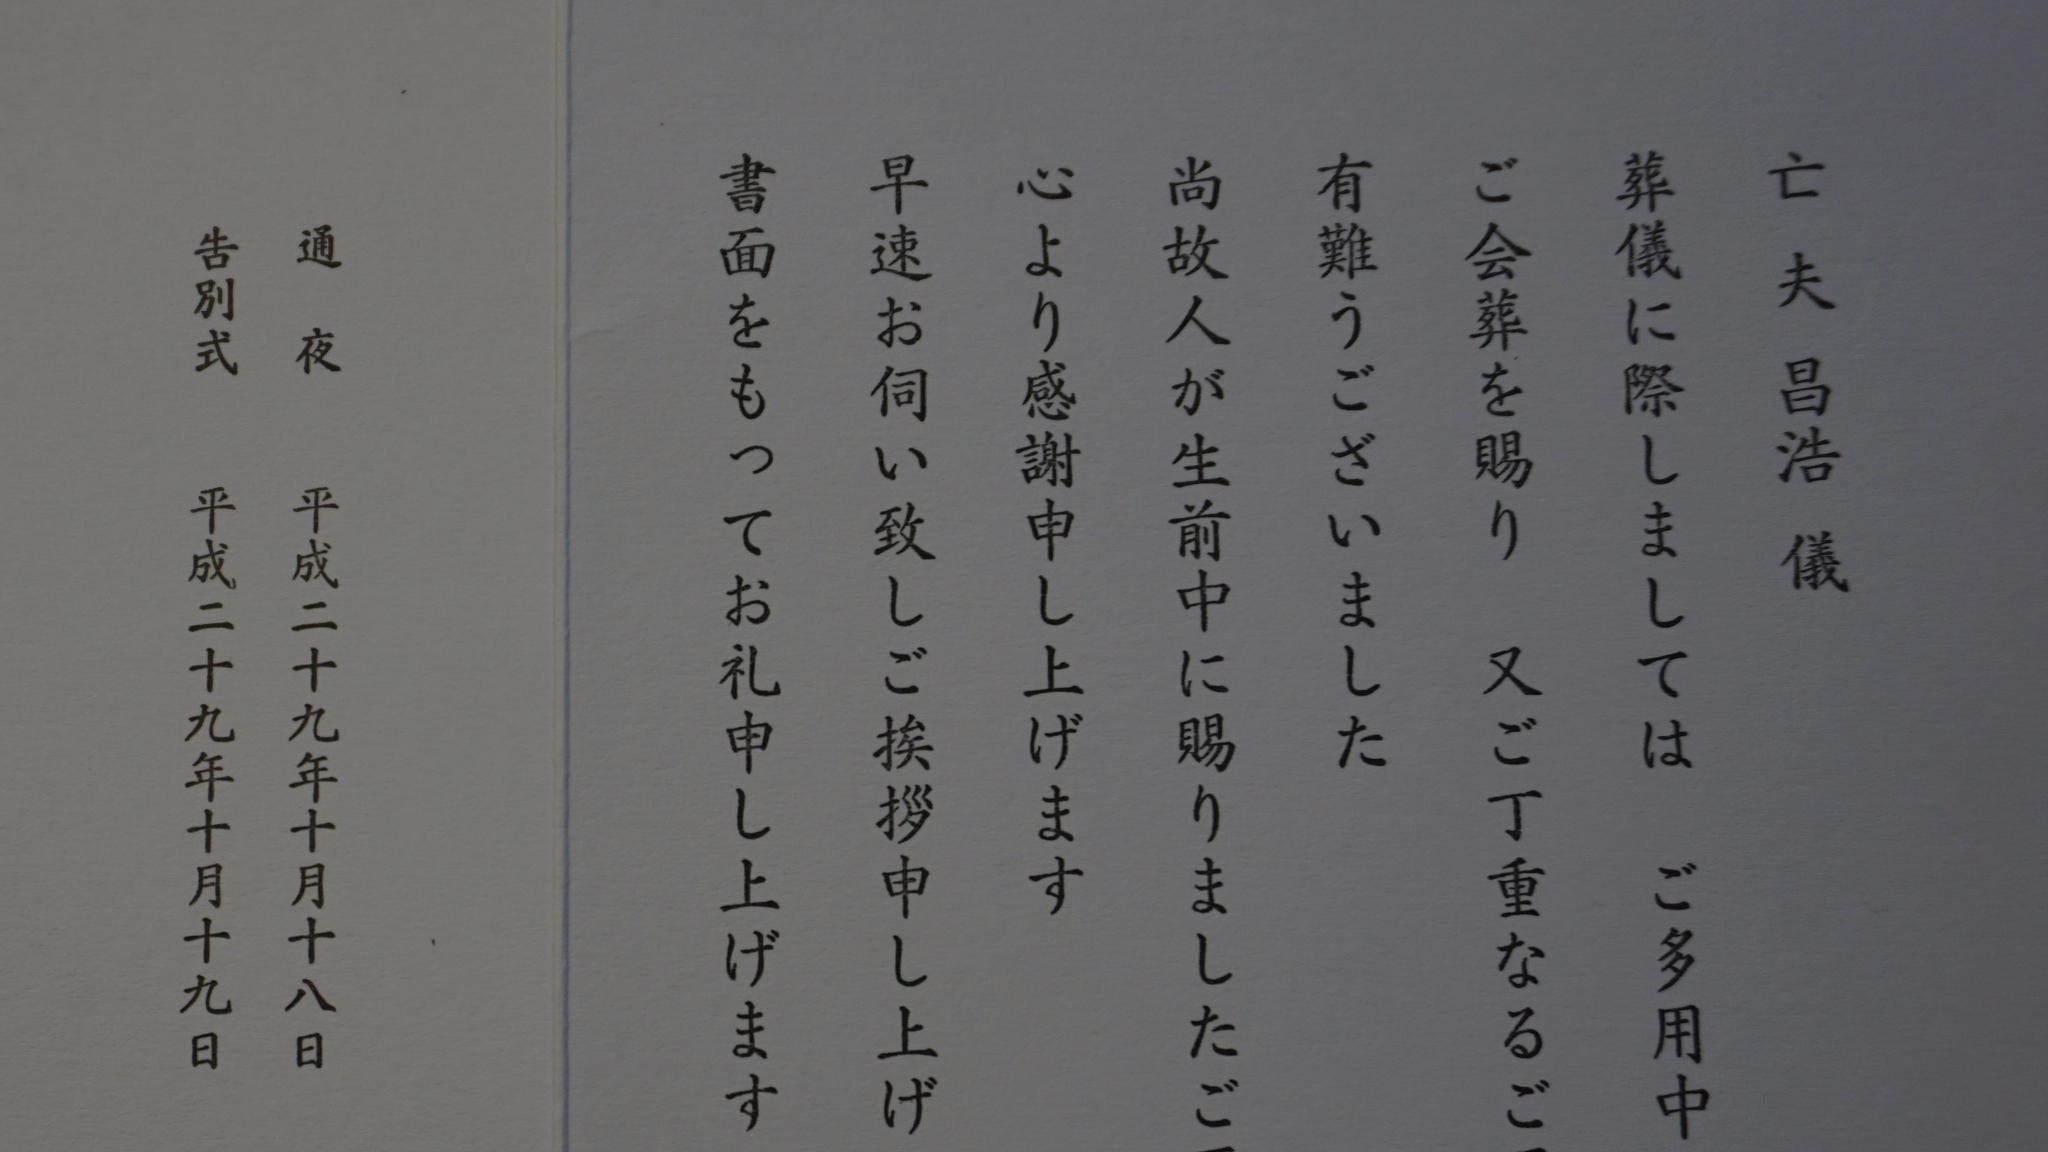 亡夫 昌浩 儀
葬儀に際しましては ご多用中
ご会葬を賜り 又ご丁重なるご
有難うございました
尚故人が生前中に賜りましたご
心より感謝申し上げます
早速お伺い致しご挨拶申し上げ
書面をもってお礼申し上げます
通夜 平成二十九年十月十八日
告別式 平成二十九年十月十九日